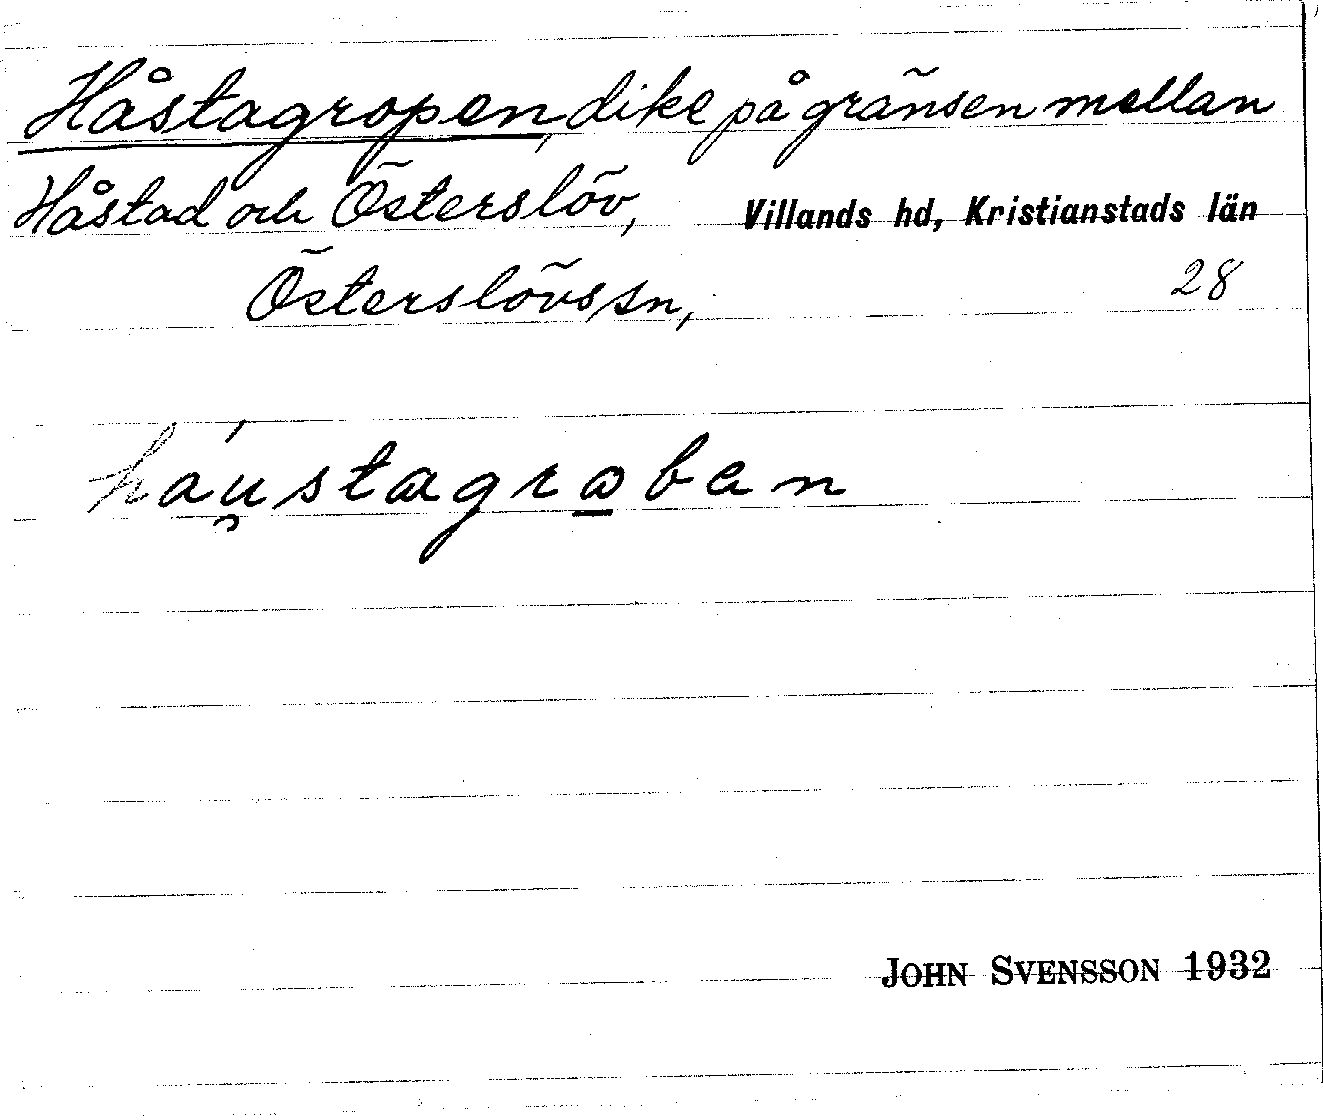 Håstagropen, dike på gränsen mellan
Håstad och Österslöv, Villands hd, Kristianstads län
Österslövs sn, 28
háu̯stagrɑ̱ban
JOHN SVENSSON 1932